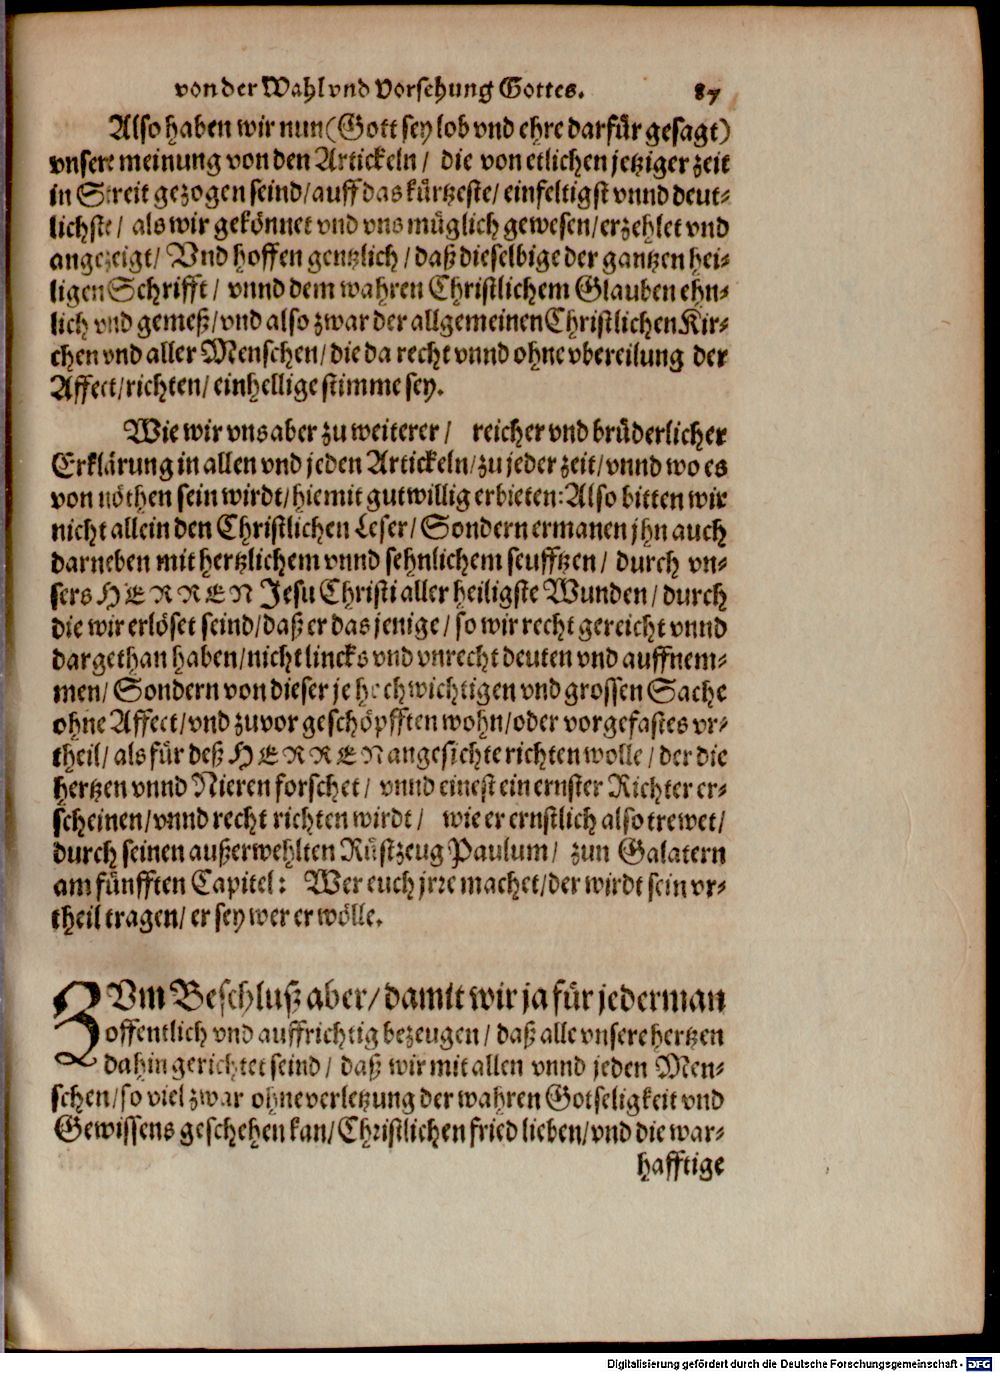 von der Wahl vnd Vorsehung Gottes. 87
Also haben wir nun (Gott sey lob vnd ehre darfür gesagt)
vnsere meinung von den Artickeln / die von etlichen jetziger zeit
in Streit gezogen seind / auff das kürtzeste / einfeltigst vnnd deut-
lichste / als wir gekönnet vnd vns müglich gewesen / erzehlet vnd
angezeigt / Vnd hoffen gentzlich / daß dieselbige der gantzen hei-
ligen Schrifft / vnnd dem wahren Christlichem Glauben ehn-
lich vnd gemeß / vnd also zwar der allgemeinen Christlichen Kir-
chen vnd aller Menschen / die da recht vnnd ohne vbereilung der
Affect / richten / einhellige stimme sey.
Wie wir vns aber zu weiterer / reicher vnd brüderlicher
Erklärung in allen vnd jeden Artickeln / zu jeder zeit / vnnd wo es
von nöthen sein wirdt / hiemit gutwillig erbieten: Also bitten wir
nicht allein den Christlichen Leser / Sondern ermanen jhn auch
darneben mit hertzlichem vnnd sehnlichem seufftzen / durch vn-
sers HERREN Jesu Christi aller heiligste Wunden / durch
die wir erlöset seind / daß er das jenige / so wir recht gereicht vnnd
dargethan haben / nicht lincks vnd vnrecht deuten vnd auffnem-
men / Sondern von dieser je hochwichtigen vnd grossen Sache
ohne Affect / vnd zuvor geschöpfften wohn / oder vorgefastes vr-
theil / als für deß HERREN angesichte richten wolle / der die
hertzen vnnd Nieren forschet / vnnd einest ein ernster Richter er-
scheinen / vnnd recht richten wirdt / wie er ernstlich also trewet /
durch seinen außerwehlten Rüstzeug Paulum / zun Galatern
am fünfften Capitel: Wer euch jrre machet / der wirdt sein vr-
theil tragen / er sey wer er wölle.
ZVm Beschluß aber / damit wir ja für jederman
offentlich vnd auffrichtig bezeugen / daß alle vnsere hertzen
dahin gerichtet seind / daß wir mit allen vnnd jeden Men-
schen / so viel zwar ohne verletzung der wahren Gotseligkeit vnd
Gewissens geschehen kan / Christlichen fried lieben / vnd die war-
hafftige
Digitalisierung gefördert durch die Deutsche Forschungsgemeinschaft - DFG